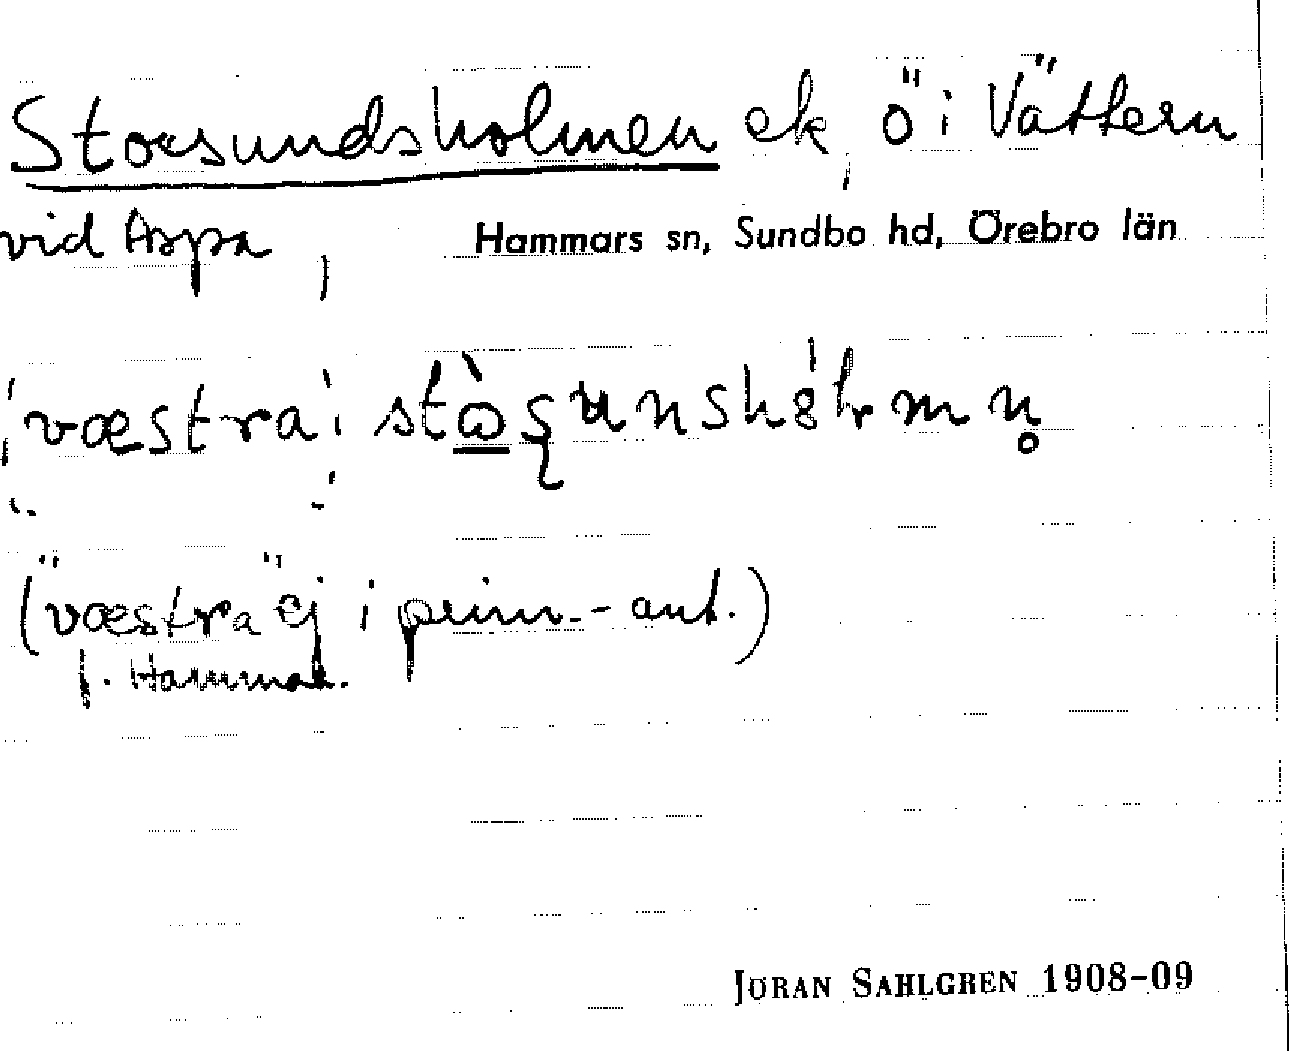 Storsundsholmen ek, ö i Vättern
vid Aspa, Hammars sn, Sundbo hd, Örebro län
væstra i
("væstra" ej i prim.-ant.)
f. Hammar.
JÖRAN SAHLGREN 1908-09